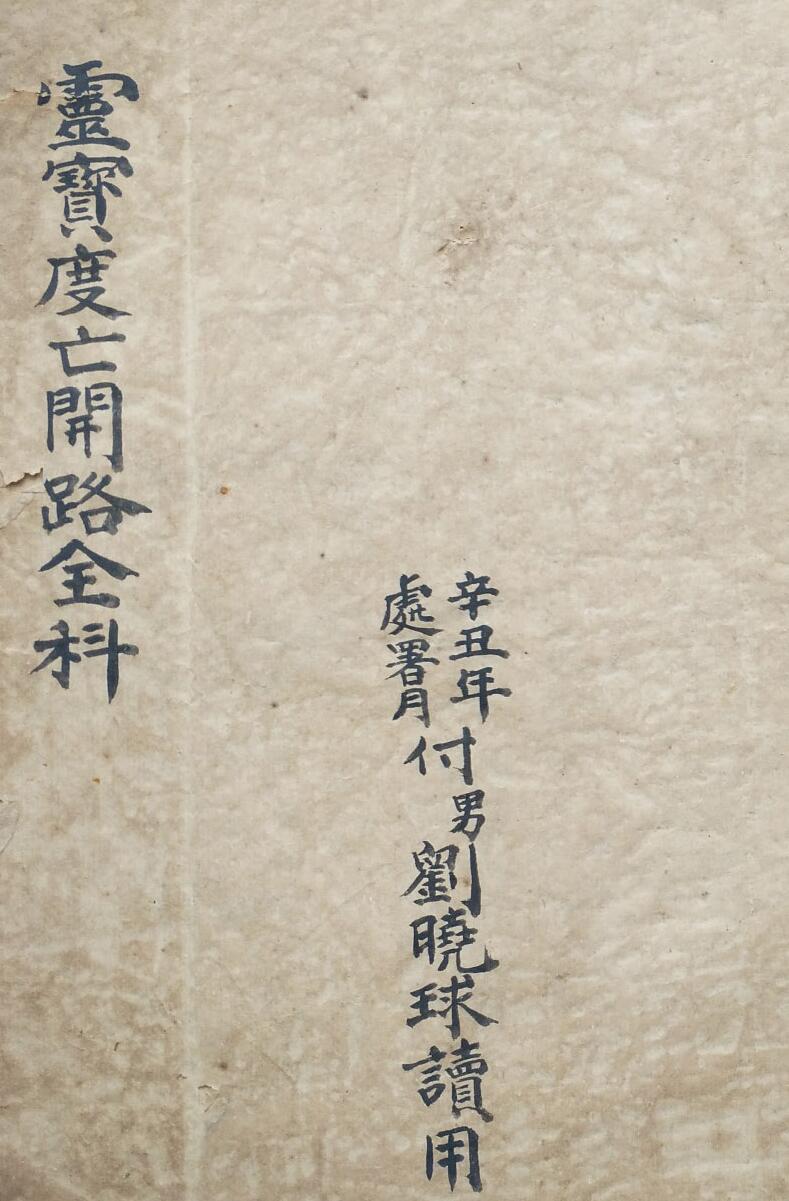 辛丑年
處署月
付男劉曉球讀用
靈寶度亡開路全科